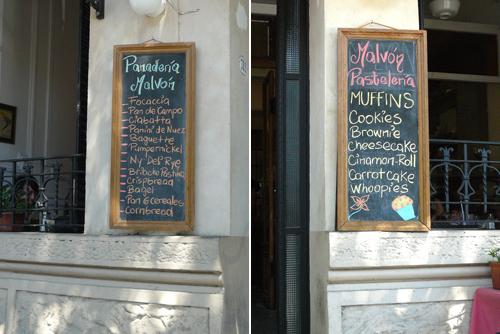 Panadería
Malvón
Focaccia
Pan de Campo
Ciabatta
Panini de Nuez
Baguette
Pumpernickel
NY Deli Rye
Crispbread
Bagel
Pan 6 cereales
Cornbread
Malvón
Pastelería
MUFFINS
Cookies
Brownie
Cheesecake
Cinamon Roll
Carrot Cake
Whoopies